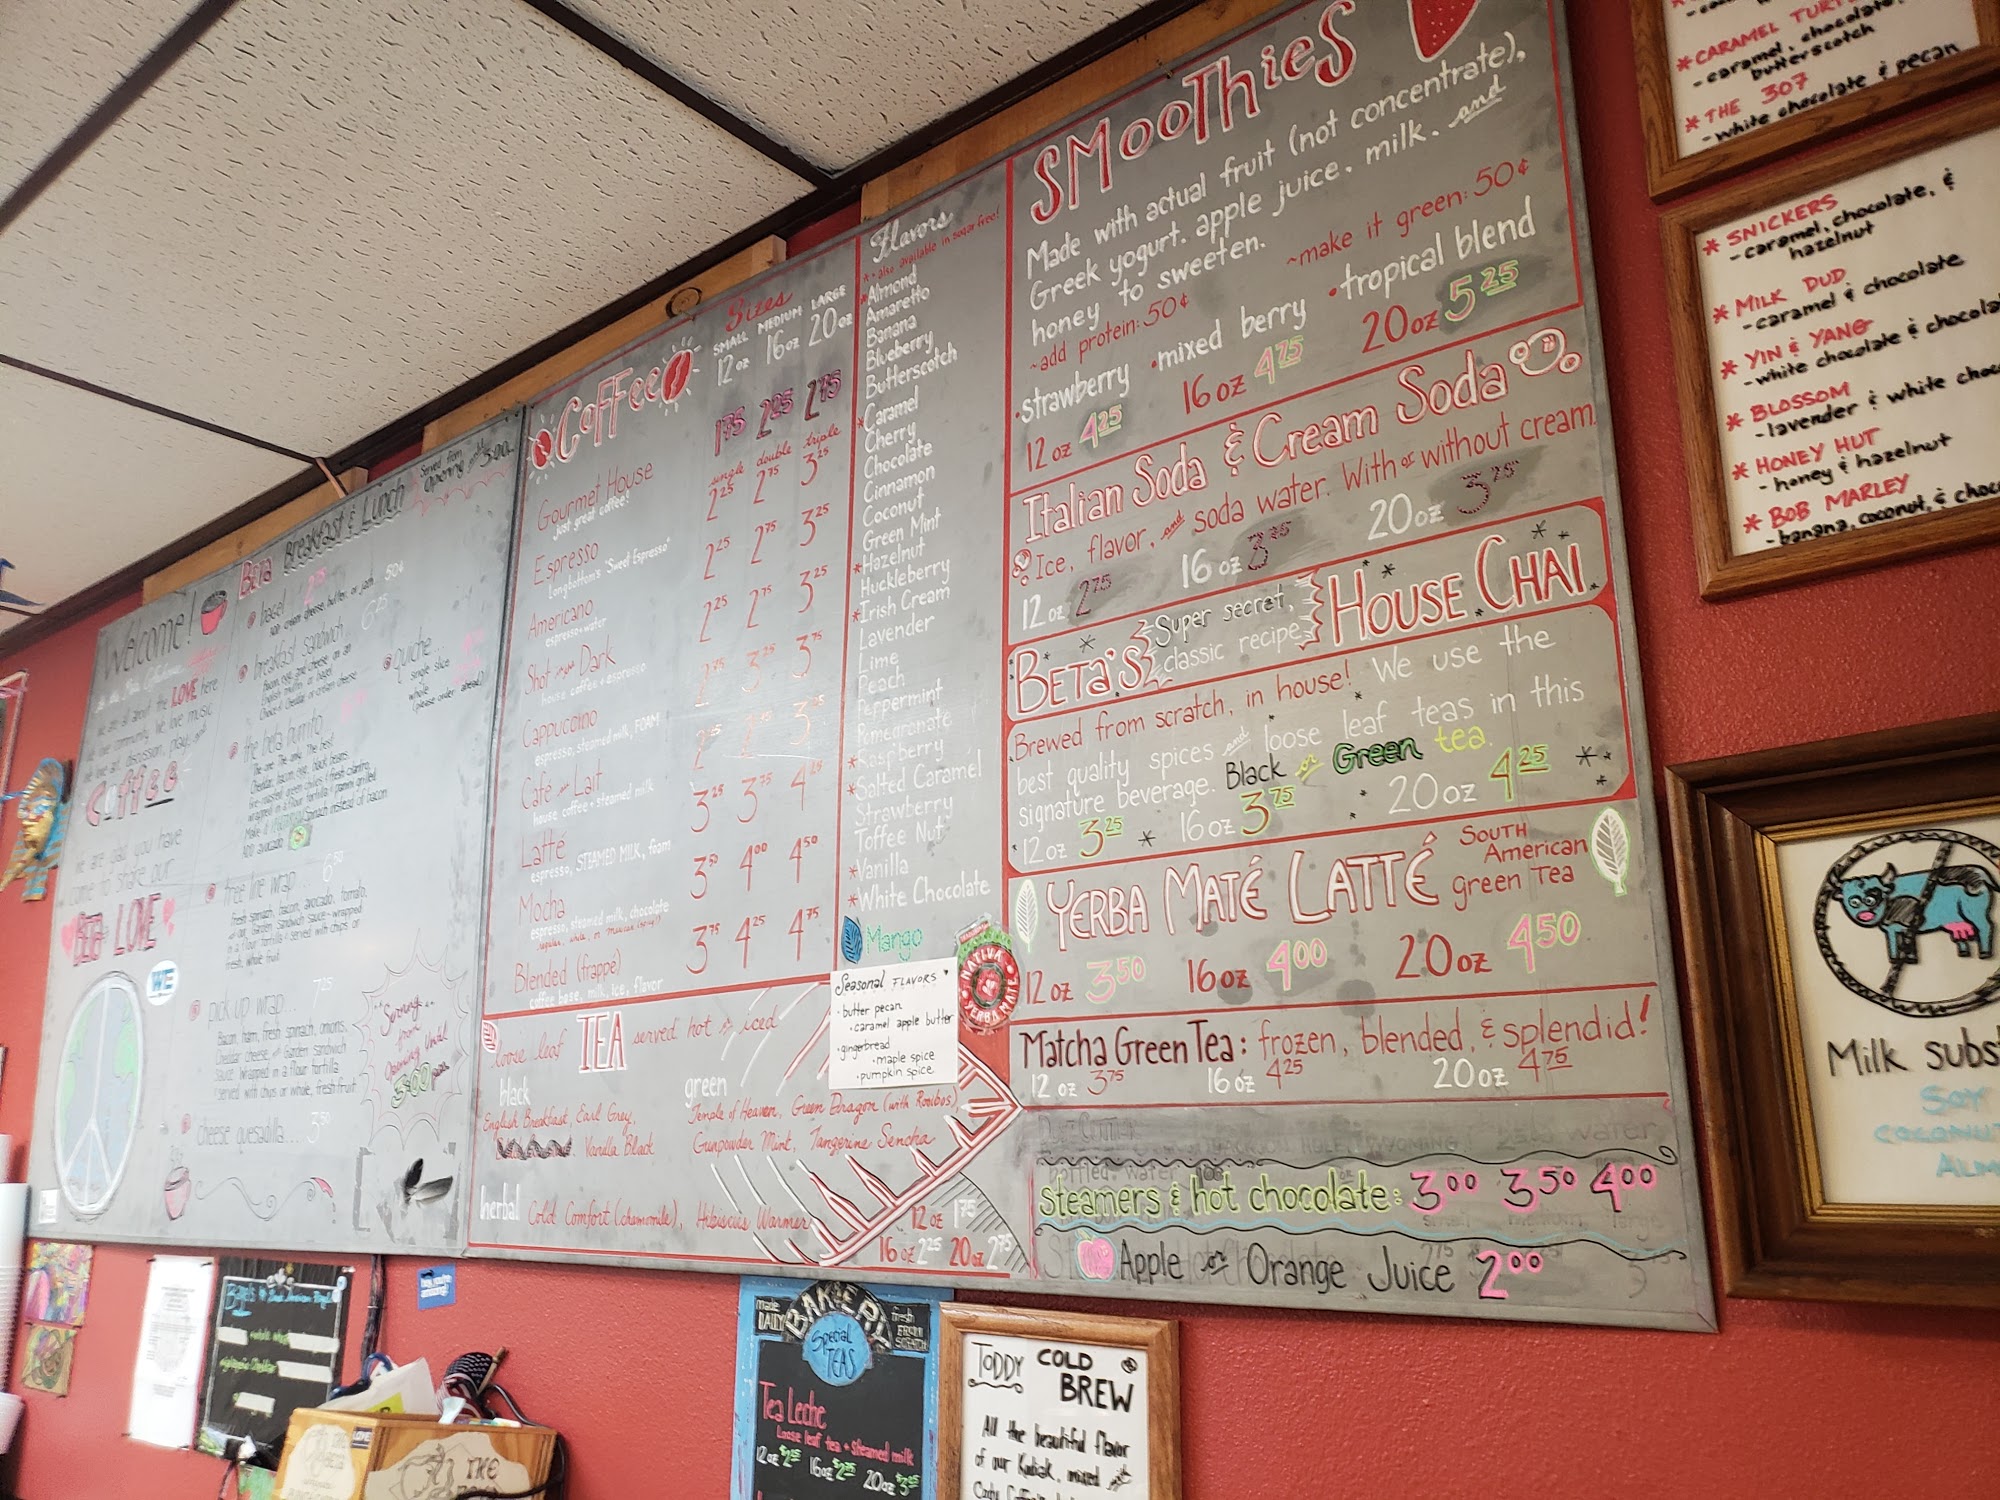 Welcome!
LOVE here
we love community. We love music.
Coffee
we are glad you have
come to share our
BETA LOVE
WE
BETA Breakfast & Lunch
Served from
opening until 3:00
bagel...
add cream cheese, butter, or jam 50¢
breakfast sandwich
bacon, egg and cheese on an
English muffin or bagel
quiche...
single slice
whole
(please order ahead)
the beta burrito
wrapped in a flour tortilla & panini grilled
spinach instead of bacon
Add avocado
tree line wrap... 6.50
fresh spinach, bacon, avocado, tomato,
in a flour tortilla & served with chips or
fresh, whole fruit
pick up wrap... 7.25
Bacon, ham, fresh spinach, onions,
Cheddar cheese, and Garden Sandwich
Sauce. Wrapped in a flour tortilla
& served with chips or whole, fresh fruit
cheese quesadilla... 3.50
Serving
from
Opening Until
3:00 pm
COFFEE
Sizes
SMALL MEDIUM LARGE
12 oz 16 oz 20 oz
Gourmet House 1.75 2.25 2.75
just great coffee!
single double triple
Espresso 2.25 2.75 3.25
Longbottom's "Sweet Espresso"
Americano 2.25 2.75 3.25
espresso + water
Shot in the Dark 2.25 2.75 3.25
house coffee + espresso
Cappuccino 2.75 3.25 3.75
espresso, steamed milk, FOAM
Café au Lait
house coffee + steamed milk
Latté 3.25 3.75 4.25
espresso, STEAMED MILK, foam
Mocha 3.50 4.00 4.50
espresso, steamed milk, chocolate
Blended (frappé) 3.75 4.25 4.75
coffee base, milk, ice, flavor
Flavors
* = also available in sugar free!
*Almond
Amaretto
Banana
Blueberry
Butterscotch
*Caramel
Cherry
Chocolate
Cinnamon
Coconut
Green Mint
*Hazelnut
Huckleberry
*Irish Cream
Lavender
Lime
Peach
Peppermint
Pomegranate
*Raspberry
*Salted Caramel
Strawberry
Toffee Nut
*Vanilla
*White Chocolate
Mango
Seasonal FLAVORS
• butter pecan
• caramel apple butter
• gingerbread
• maple spice
• pumpkin spice
NATIVA
YERBA MATE
loose leaf TEA served hot or iced
black
English Breakfast, Earl Grey,
Vanilla Black
green
Temple of Heaven, Green Dragon (with Rooibos)
Gunpowder Mint, Tangerine Sencha
herbal Cold Comfort (chamomile), Hibiscus Warmer
12 oz 1.75
16 oz 2.25 20 oz 2.75
SMOOTHIES
Made with actual fruit (not concentrate),
Greek yogurt, apple juice, milk, and
honey to sweeten.
~add protein: 50¢ ~make it green: 50¢
•strawberry •mixed berry •tropical blend
12 oz 4.25 16 oz 4.75 20 oz 5.25
Italian Soda & Cream Soda
Ice, flavor, and soda water. With or without cream.
12 oz 2.75 16 oz 3.25 20 oz 3.75
BETA'S Super secret, classic recipe HOUSE CHAI
Brewed from scratch, in house! We use the
best quality spices and loose leaf teas in this
signature beverage. Black or Green tea.
12 oz 3.25 16 oz 3.75 20 oz 4.25
YERBA MATÉ LATTÉ South American green tea
12 oz 3.50 16 oz 4.00 20 oz 4.50
Matcha Green Tea: frozen, blended, & splendid!
12 oz 3.75 16 oz 4.25 20 oz 4.75
steamers & hot chocolate: 3.00 3.50 4.00
Apple or Orange Juice 2.00
* CARAMEL TURTLE
- caramel, chocolate,
butterscotch
* THE 307
- white chocolate & pecan
* SNICKERS
- caramel, chocolate, &
hazelnut
* MILK DUD
- caramel & chocolate
* YIN & YANG
- white chocolate & chocola
* BLOSSOM
- lavender & white choc
* HONEY HUT
- honey & hazelnut
* BOB MARLEY
- banana, coconut, & choc
MILK SUBS
SOY
COCONUT
ALM
made DAILY BAKERY fresh FROM SCRATCH
Special
TEAS
Tea Leche
Loose leaf tea + steamed milk
12oz $2.25 16oz $2.75 20oz $3.25
TODDY COLD
BREW
All the beautiful flavor
of our Kodiak, mixed
hey, you're
amazing!
THE